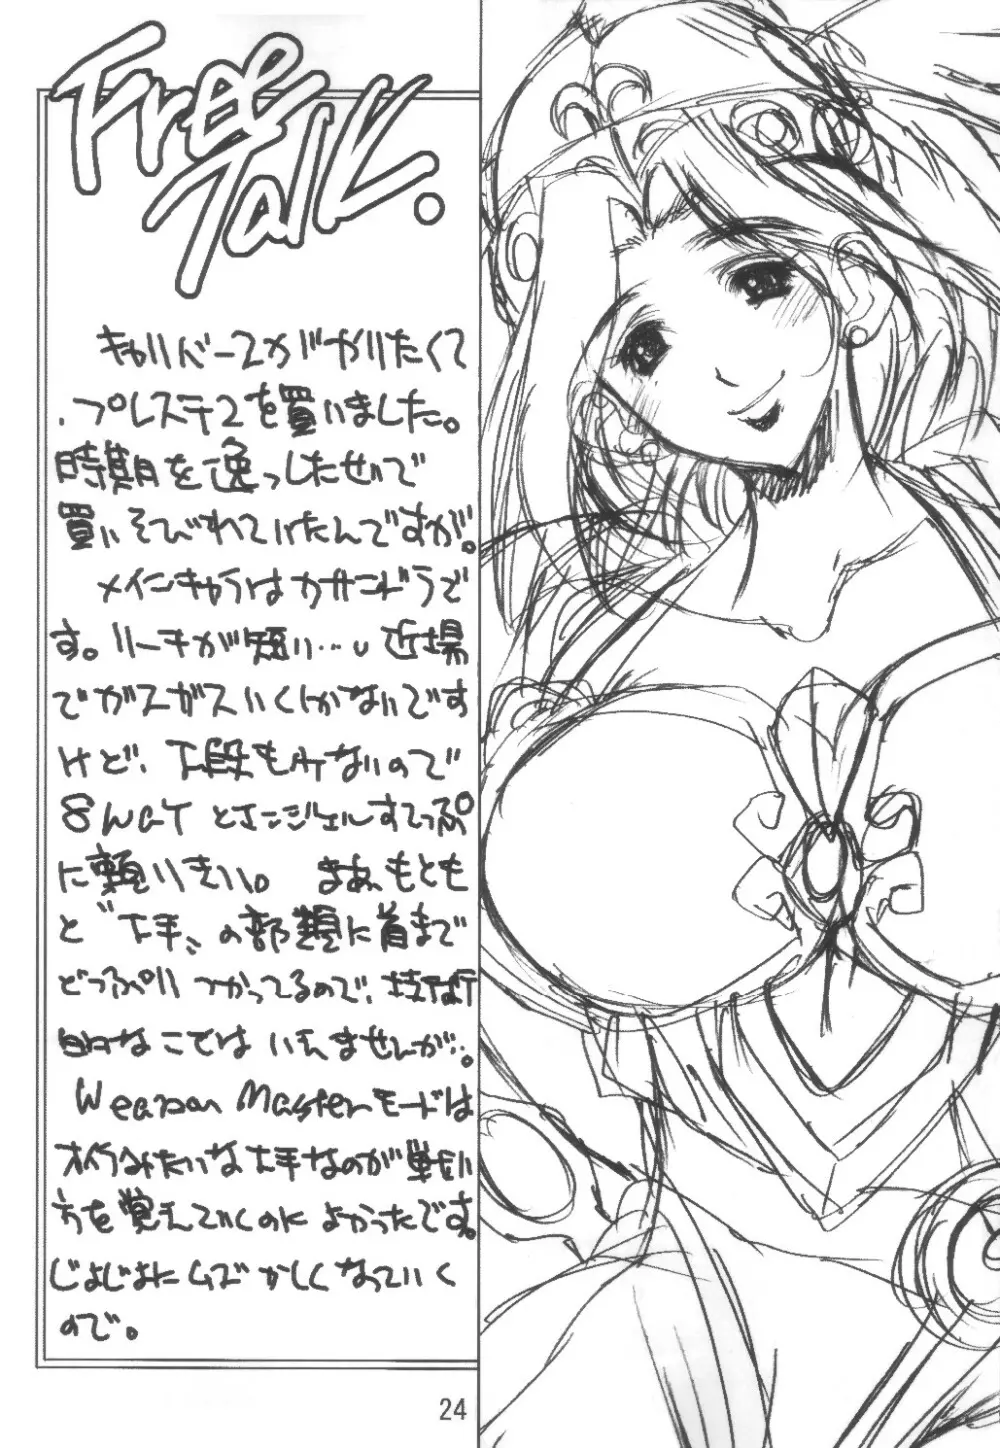 Free
Talk.
キャリバー2がやりたくて
、プレステ2を買いました。
時期を逸っしたせいで
買いそびれていたんですが。
メインキャラはカサンドラで
す。リーチが短い…近場
でガスガスいくしかないです
けど、下段もみないので
8wayとエンジェルすてっぷ
に頼りきり。まぁ、もともと
ど〝下手〟の部類に首まで
どっぷりつかってるので、技術
的なことではいえませんが…。
Weapon Masterモードは
オイラみたいな下手なのが戦い
方を覚えていくのによかったです。
じょじょにムズかしくなっていく
ので。
24